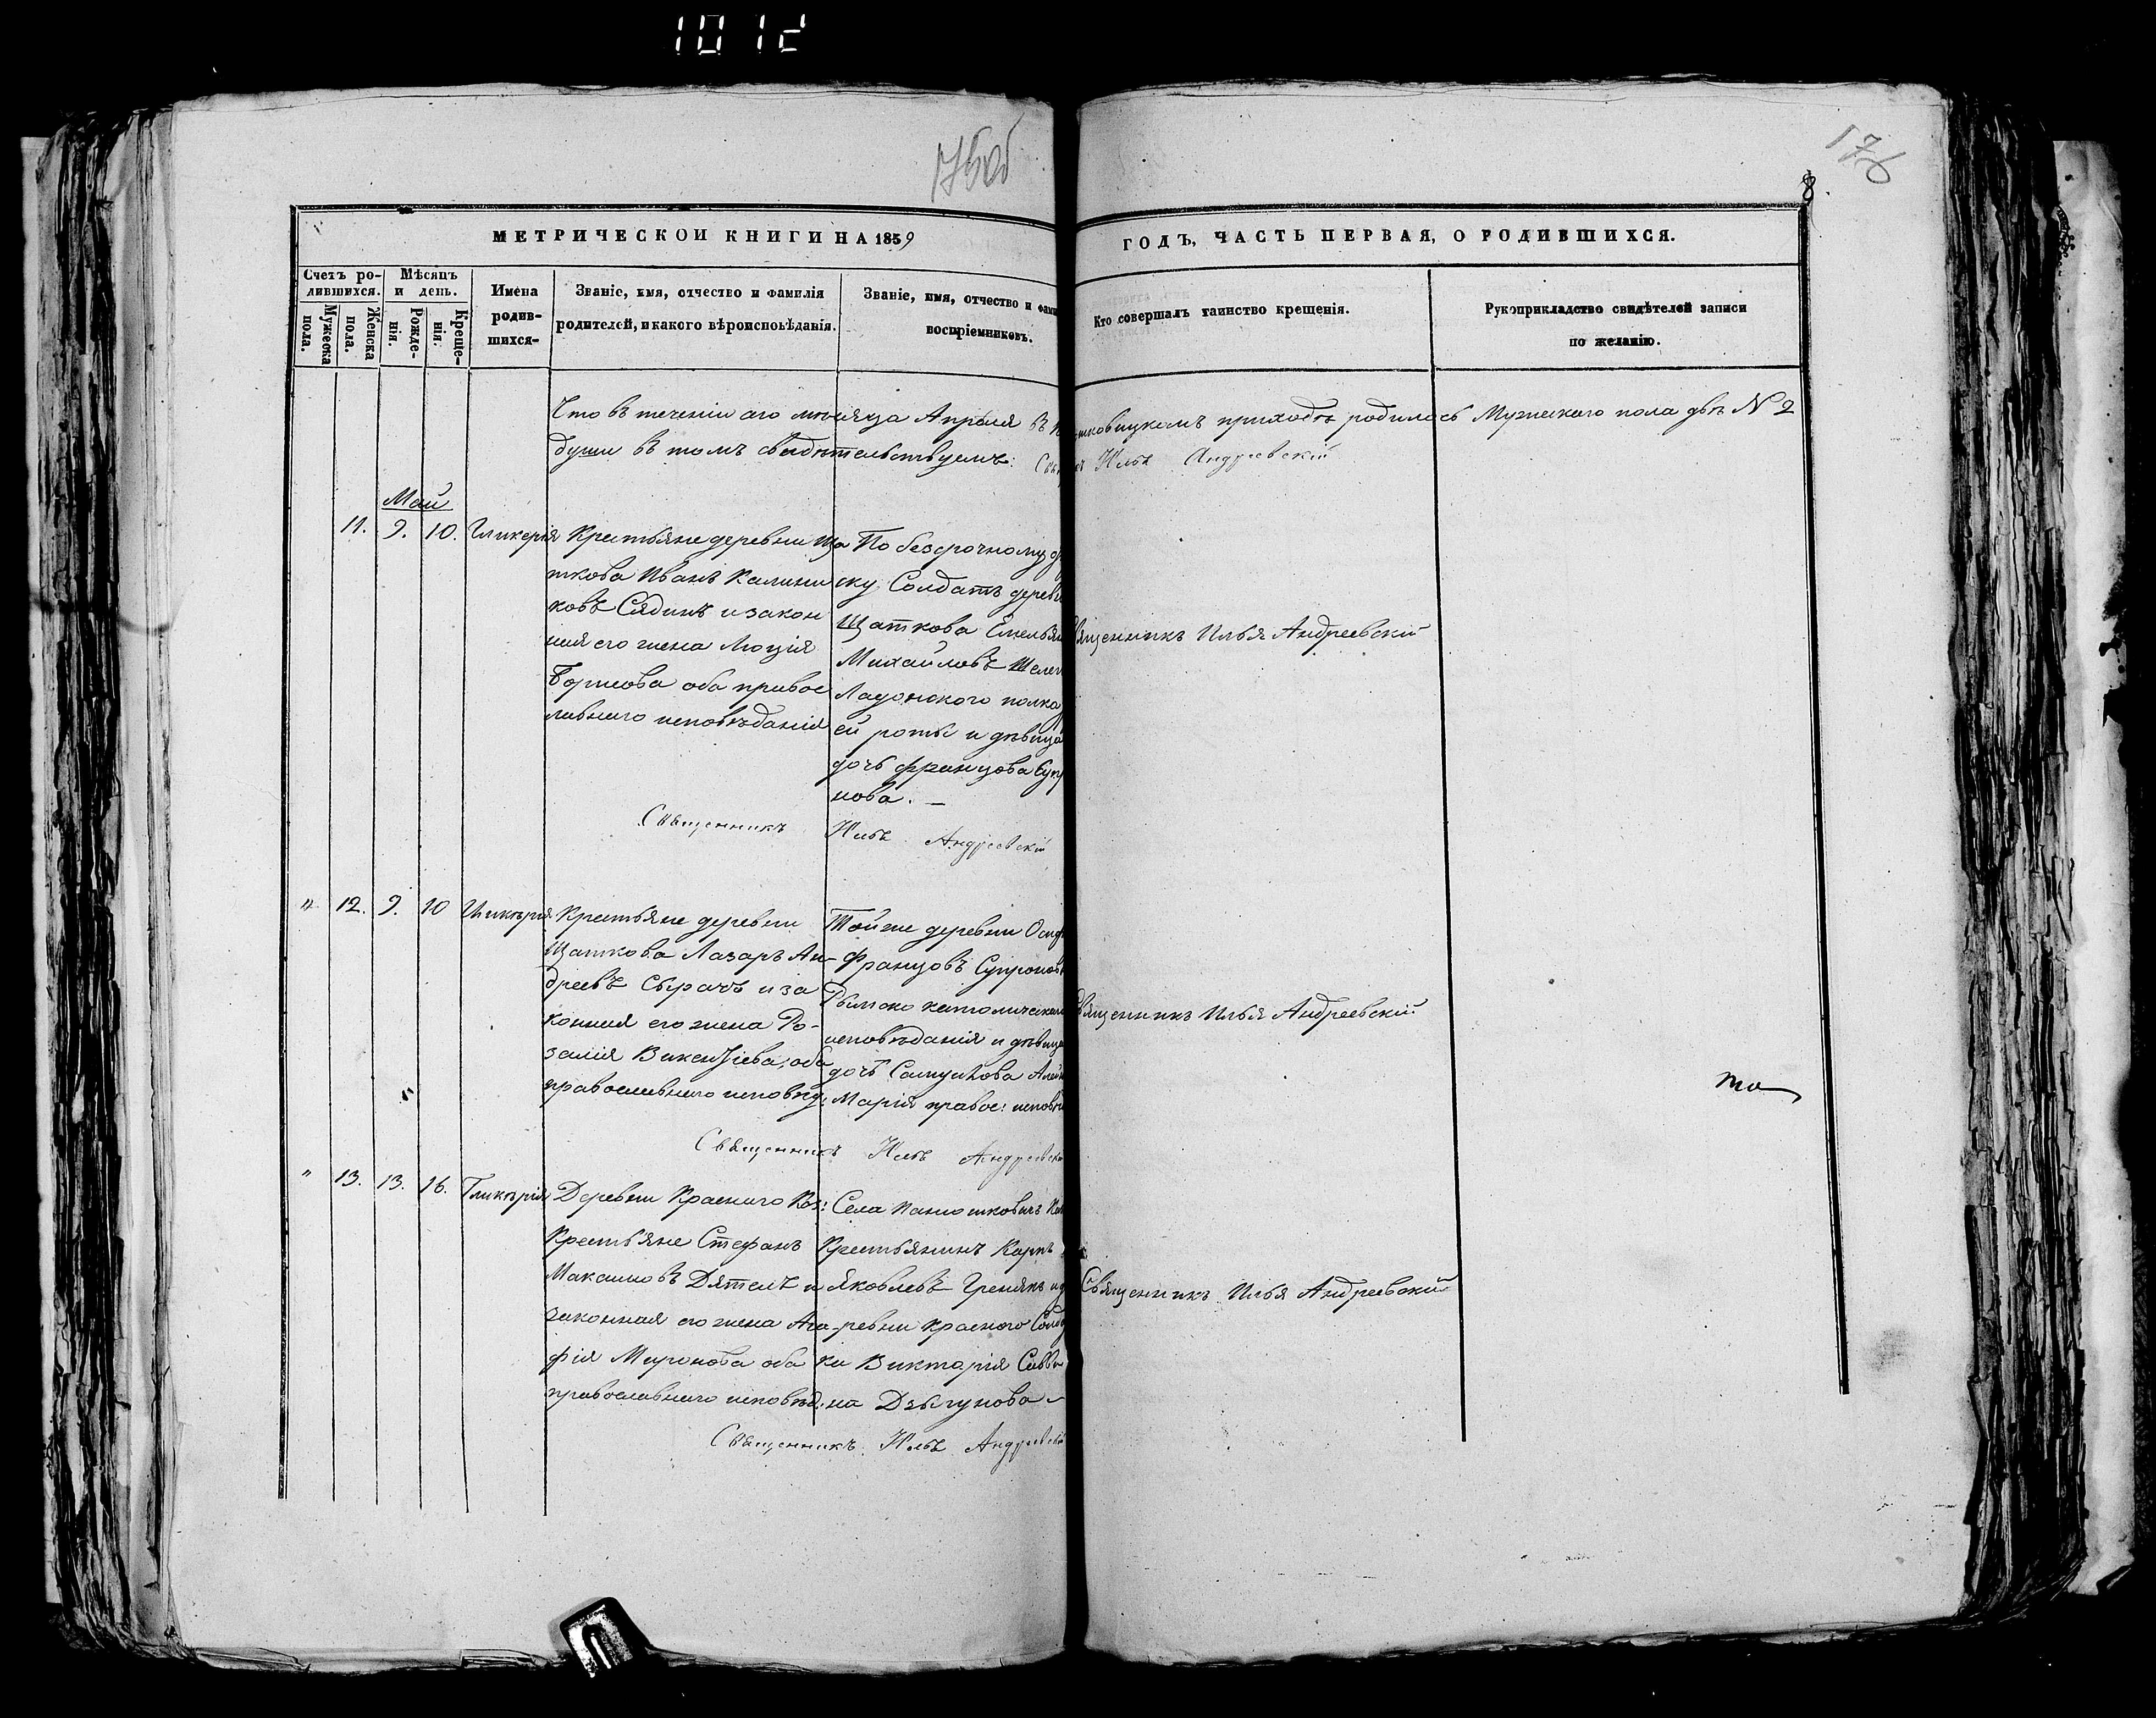 1012
175об
176
8.
МЕТРИЧЕСКОЙ КНИГИ НА 1859
ГОДЪ, ЧАСТЬ ПЕРВАЯ, О РОДИВШИХСЯ.
Счетъ ро-
дившихся.
Мужеска
пола.
Женска
пола.
Мѣсяцъ
и день.
Рожде-
нія.
Креще-
нія.
Имена
родив-
шихся-
Званіе, имя, отчество и фамилія
родителей, и какого вѣроисповѣданія.
Званіе, имя, отчество и фами
воспріемниковъ.
Кто совершалъ таинство крещенія.
Рукоприкладство свидѣтелей записи
по желанію.
Что въ теченіи сего мѣсяца Апрѣля въ приходѣ родилось Мужескаго пола двѣ N 2
души въ томъ свидѣтельствуемъ: Андреевскій
Май
11. 9. 10. Гликерія
Крестьяне деревни Ща
ткова Иванъ Калини
ковъ Сядинъ и закон
ная его жена Люція
Борисова оба правос
лавнаго исповѣданія
По безсрочному
ску Солдатъ дерев
Щаткова Емельян
Михайловъ
полка
ей роты и дѣвица
дочь Францова
нова. —
Священникъ Илья Андреевскій
Священникъ Андреевскій
" 12. 9. 10 Гликѣрія
Крестьяне деревни
Щаткова Лазарь Ан-
дреевъ Сырачъ и за
конная его жена Ро-
залія Викентіева, оба
православнаго исповѣд:
Той же деревни Осиф
Францовъ Супронов
Римско католическаго
исповѣданія и дѣвица
дочь
Марія правос: исповѣ
Священникъ Илья Андреевскій.
та
Священникъ Андреевскі
" 13. 13. 16. Гликѣрія
Деревни Краснаго
Крестьяне Стефанъ
Максимовъ Дятелъ и
законная его жена Ага-
фія Миронова оба
православнаго исповѣд.
Села
Крестьянинъ Карпъ
Яковлевъ и д
ревни Краснаго
ка Викторія Савви
на Дзыгунова —
Священникъ Илья Андреевскій
Священникъ Андреевскій